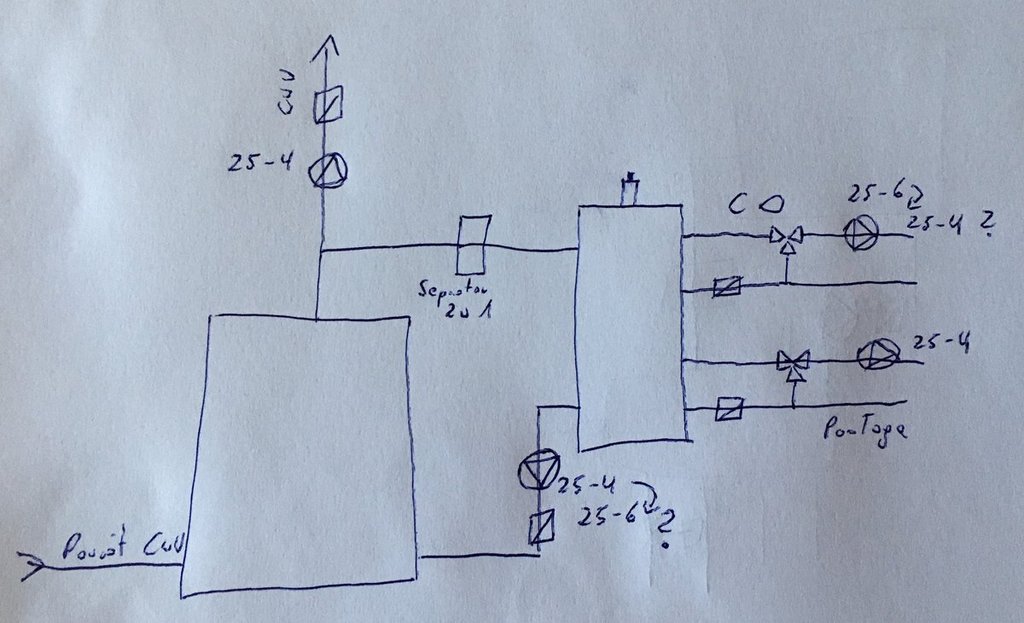 CWU
25-4
Separator
2w1
CO
25-6?
25-4 ?
25-4
Podłoga
25-4
25-6 ?
Powrót CWU